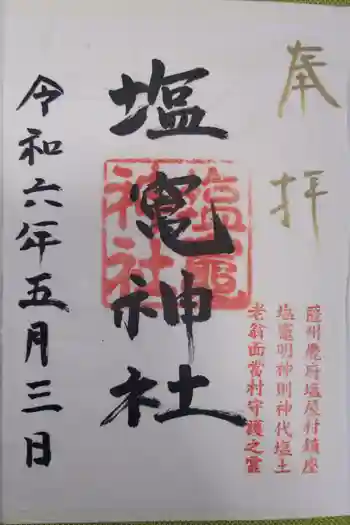 奉拝
隠州麑府塩屋村鎮座
塩竈明神則神代塩土
老翁面當村守護之霊
塩竈神社
塩竈神社
令和六年五月三日